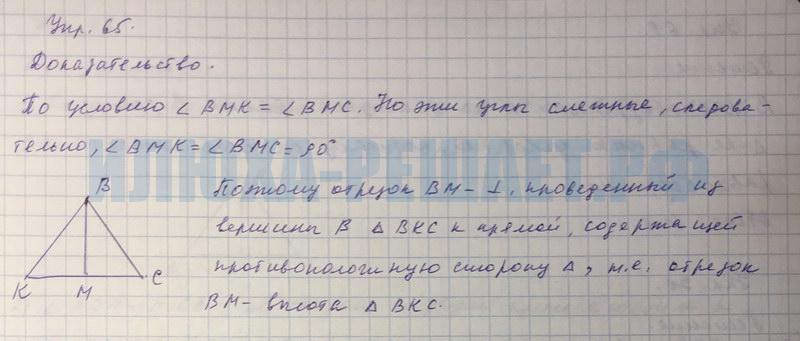 Упр. 65.
Доказательство.
По условию ∠ BMK = ∠ BMC. Но эти углы смежные, следова-
тельно, ∠ BMK = ∠ BMC = 90°
ИЛЮХА-РЕШАЕТ.РФ
B
Поэтому отрезок BM - ⊥, проведенный из
вершины B △ BKC к прямой, содержащей
противоположную сторону △, т.е. отрезок
K M C
BM - высота △ BKC.